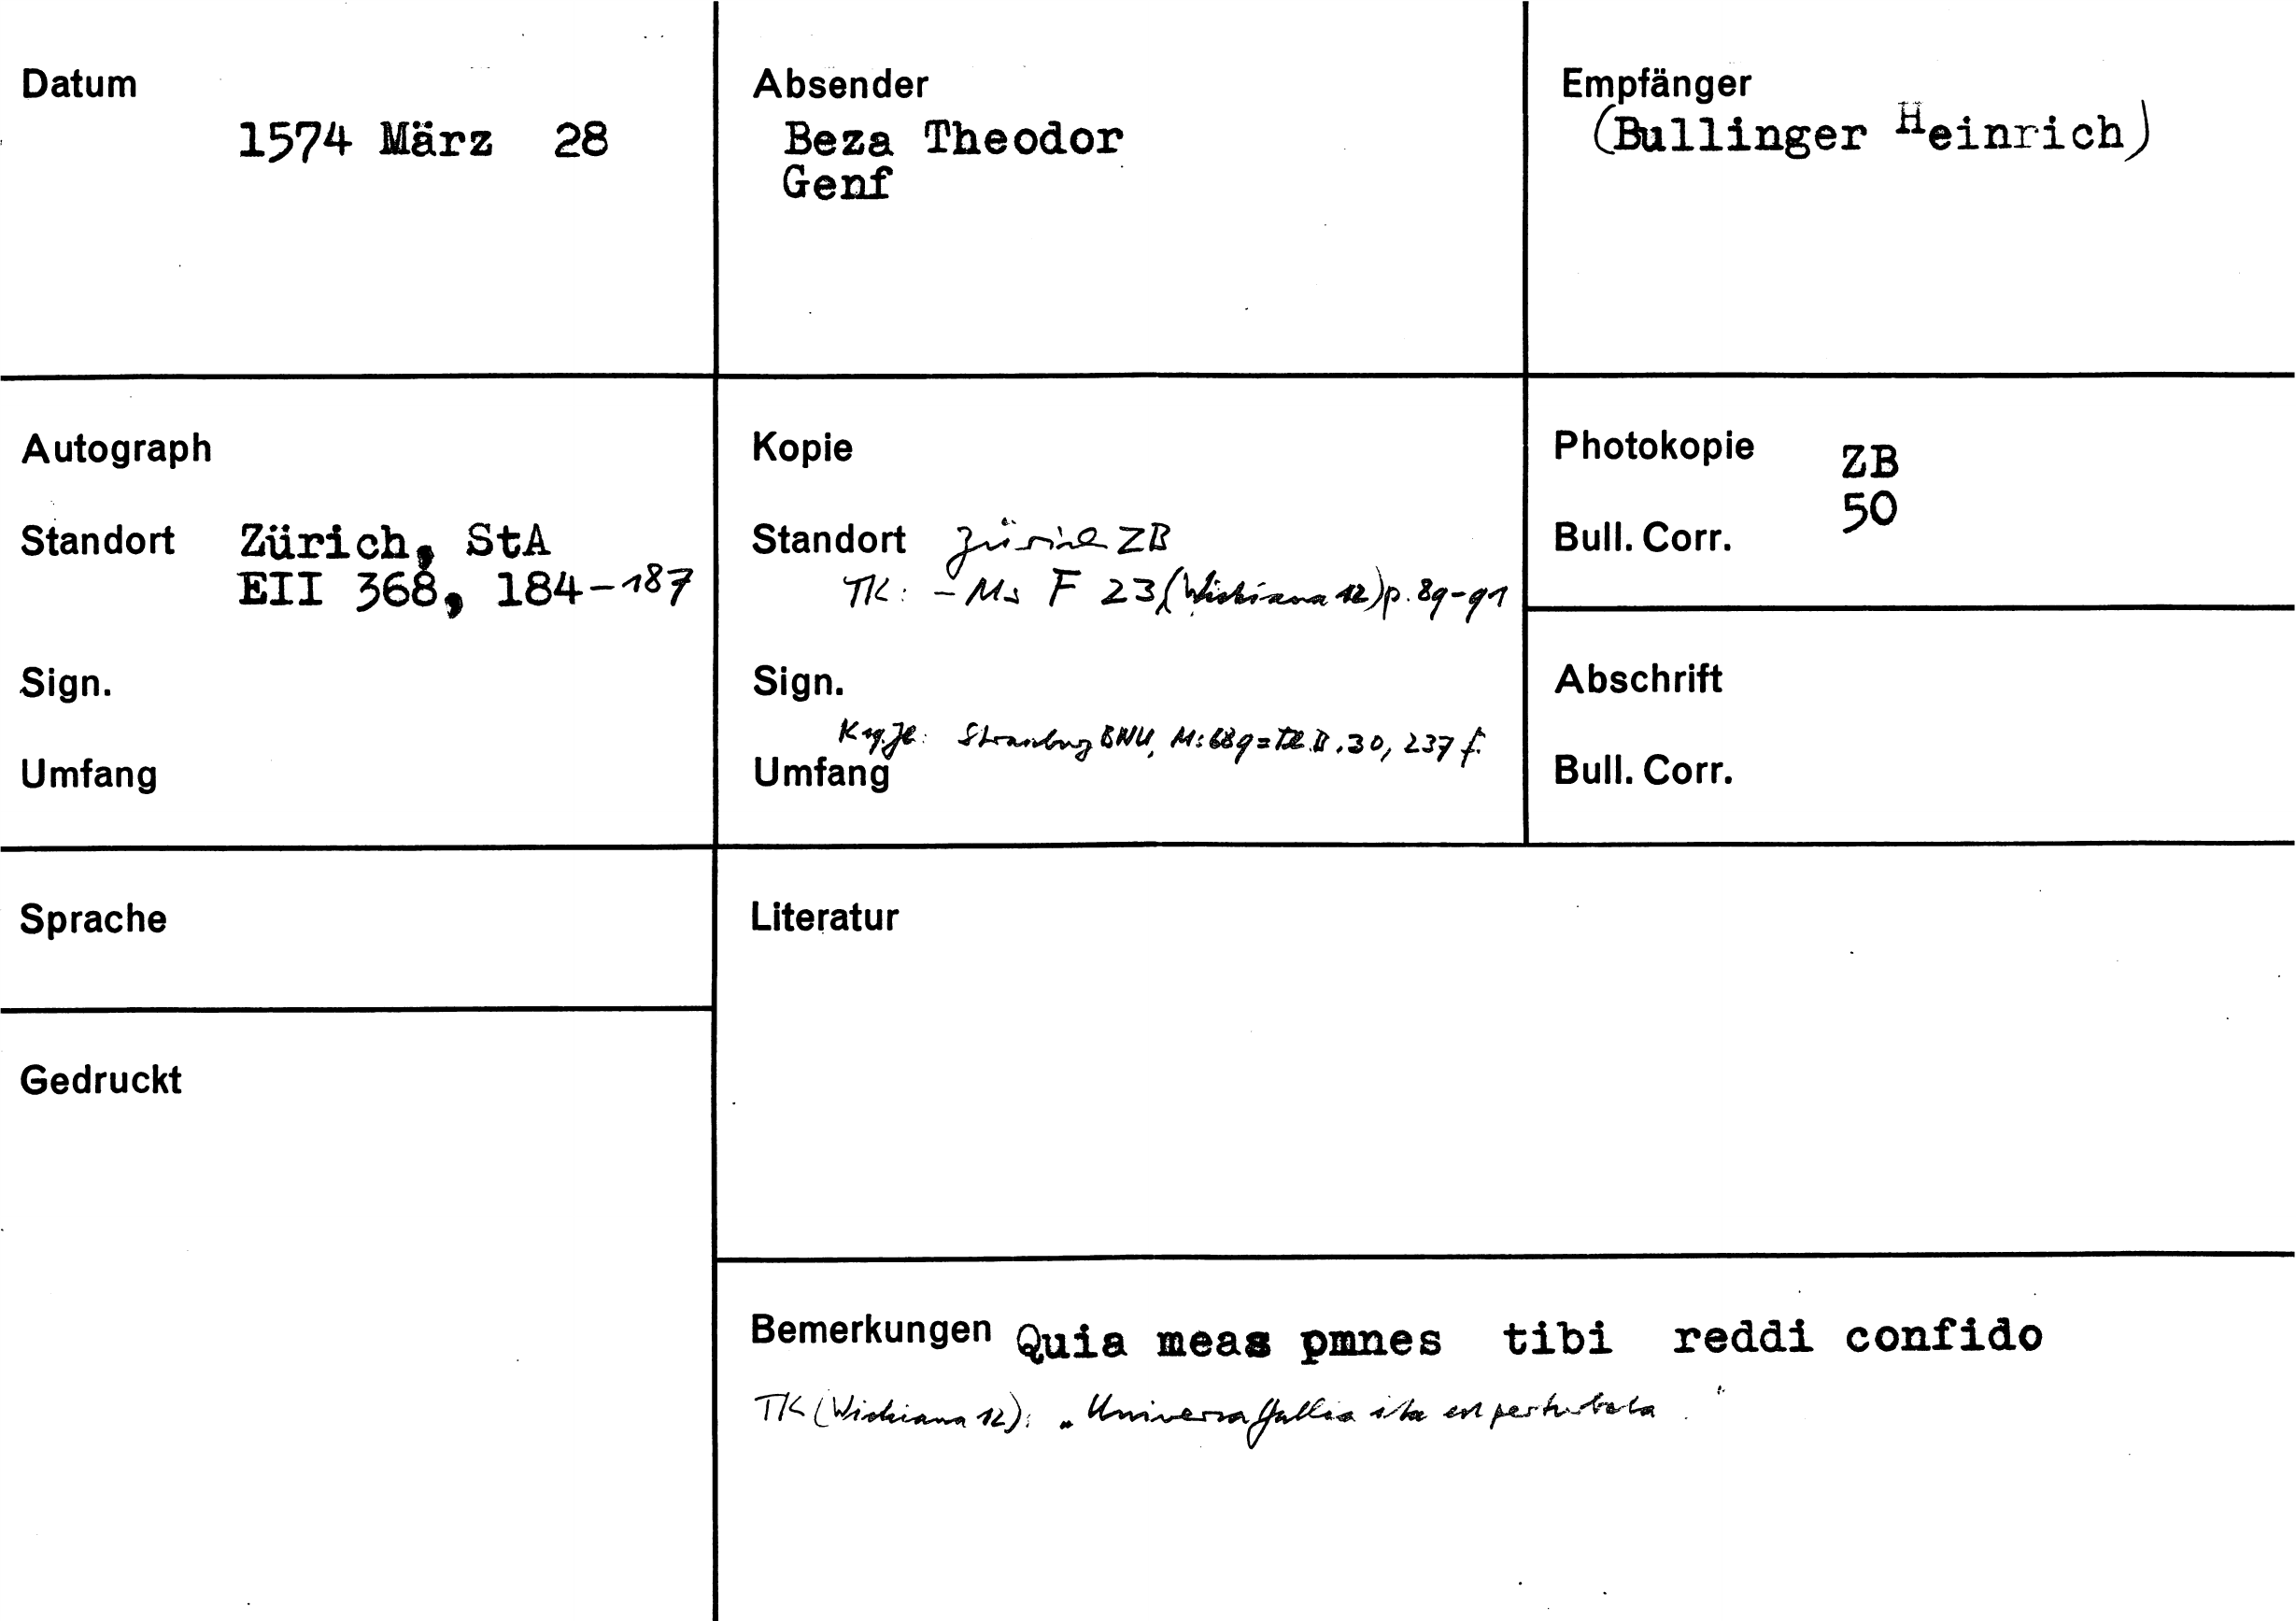 Datum
1574 März 28
Absender
Beza Theodor
Genf
Empfänger
(Bullinger Heinrich)
Autograph
Standort Zürich, StA
EII 368, 184-187
Sign.
Umfang
Kopie
Standort Zürich ZB
TK: - Ms F 23 (Wickiana 12) p. 89-91
Sign.
Straßburg BNU, Ms 689 = 30, 237 f.
Umfang
Photokopie ZB
Bull. Corr. 50
Abschrift
Bull. Corr.
Sprache
Literatur
Gedruckt
Bemerkungen Quia meas pmnes tibi reddi confido
TK (Wickiana 12): „Universa Gallia ita est perturbata"